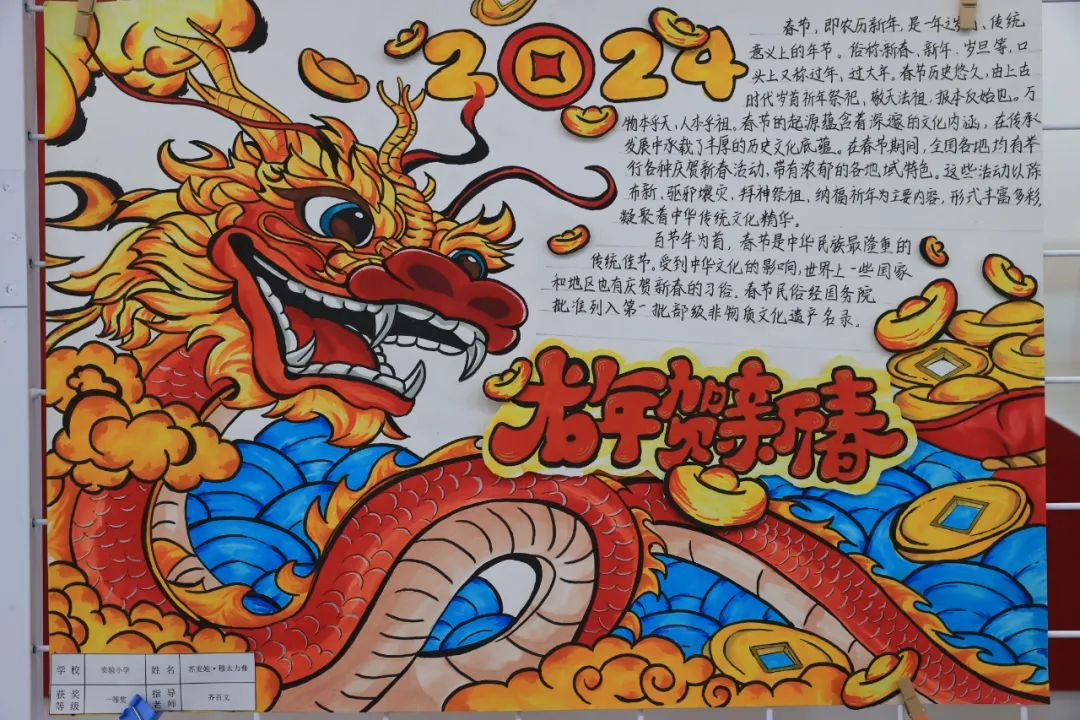 2024
春节，即农历新年，是一年之岁首、传统
意义上的年节。俗称新春、新年、岁旦等，口
头上又称过年、过大年。春节历史悠久，由上古
时代岁首祈年祭祀、敬天法祖、报本反始也。万
物本乎天，人本乎祖。春节的起源蕴含着深邃的文化内涵，在传承
发展中承载了丰厚的历史文化底蕴。在春节期间，全国各地均有举
行各种庆贺新春活动，带有浓郁的各地域特色。这些活动以除
布新、驱邪攘灾、拜神祭祖、纳福祈年为主要内容，形式丰富多彩，
凝聚着中华传统文化精华。
百节年为首，春节是中华民族最隆重的
传统佳节。受到中华文化的影响，世界上一些国家
和地区也有庆贺新春的习俗。春节民俗经国务院
批准列入第一批部级非物质文化遗产名录。
龙年贺新春
学校 实验小学 姓名 苏麦娅·穆太力普
获奖等级 一等奖 指导老师 齐百文